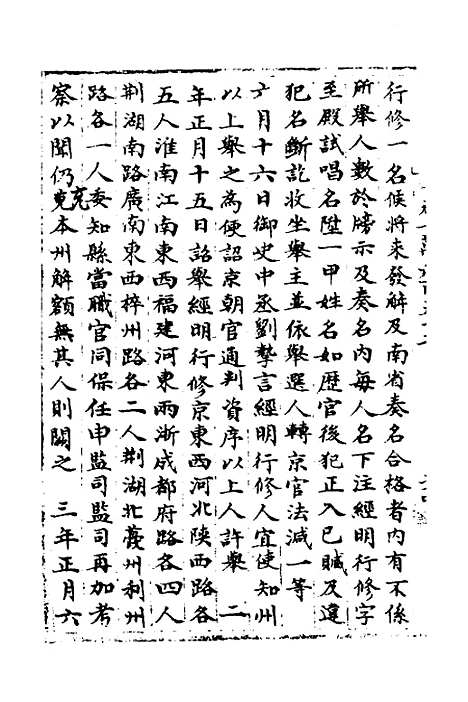 行修一名候將来發解及南省奏名合格者内有不係
所舉人數於牓示及奏名内每人名下注經明行修字
至殿試唱名陞一甲姓名如歴官後犯正入已贓及違
犯名斷訖收坐舉主並依舉選人轉京官法減一等
六月十六日御史中丞劉摯言經明行修人宜使知州
以上舉之為便詔京朝官通判資序以上人許舉 二
年正月十五日詔舉經明行修京東西河北陝西路各
五人淮南江南東西福建河東兩浙成都府路各四人
荆湖南路廣南東西梓州路各二人荆湖北夔州利州
路各一人委知縣當職官同保任申監司監司再加考
察以聞仍充本州解額無其人則闕之 三年正月六